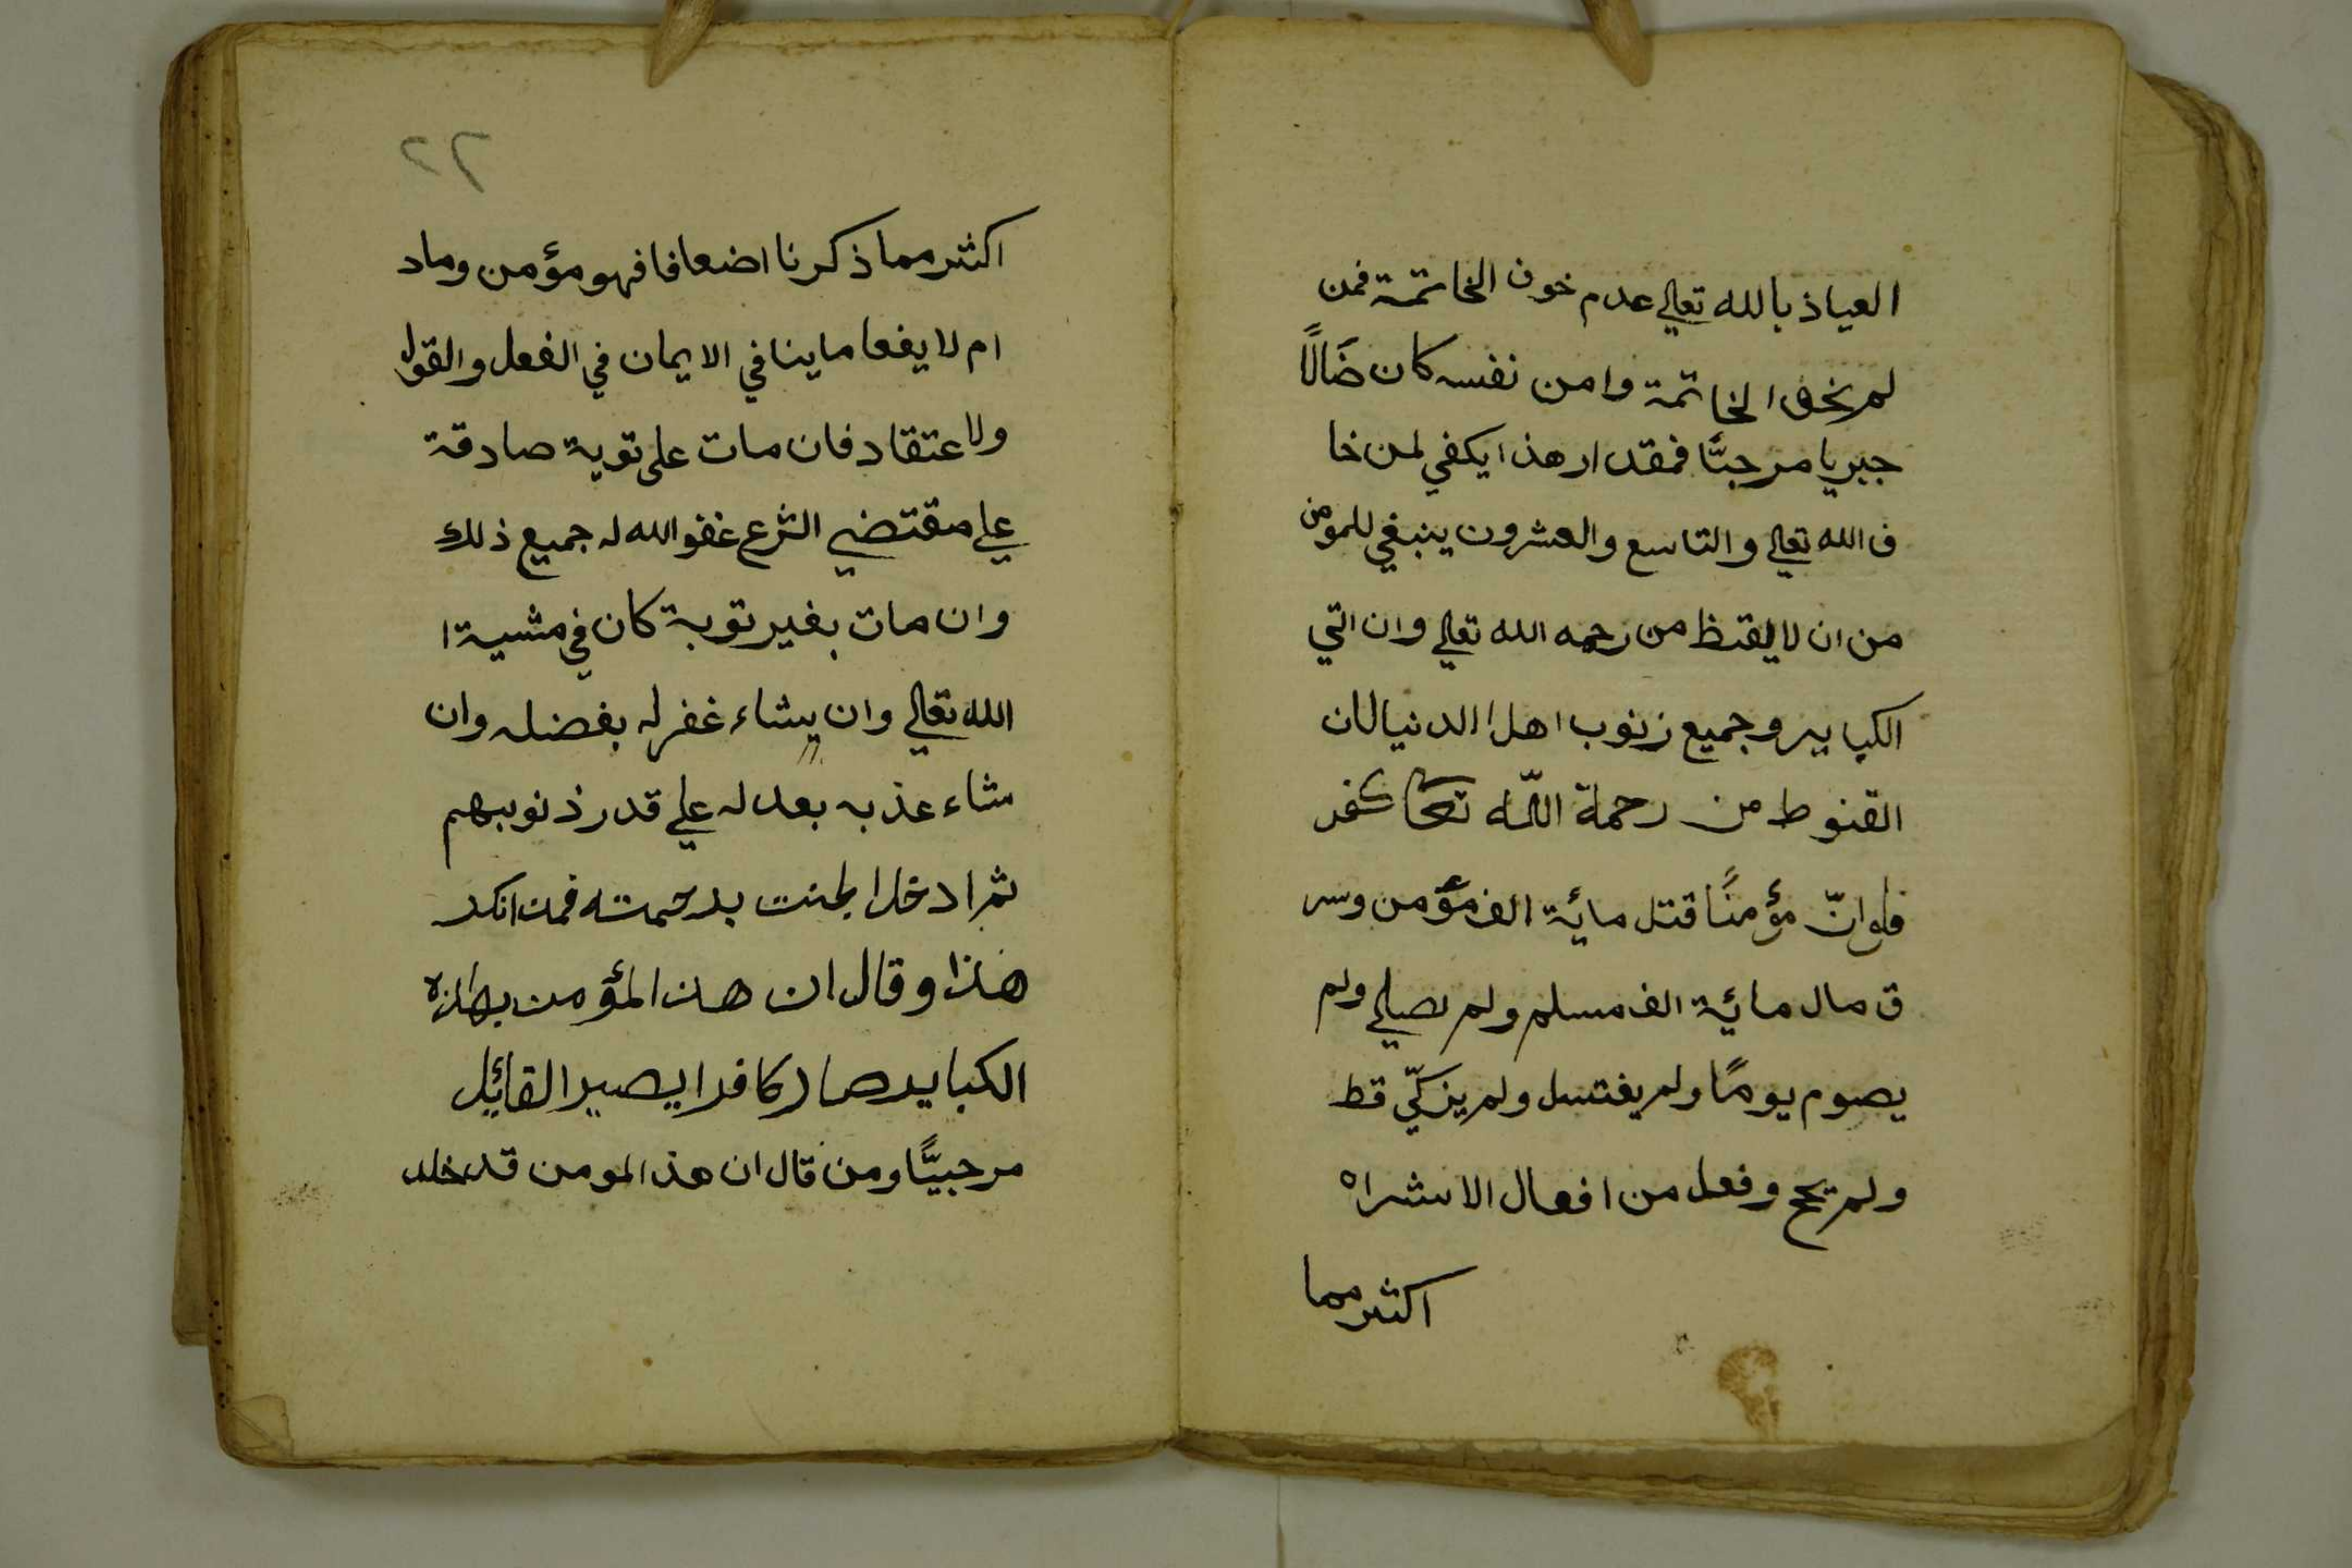 العياذ بالله تعالي عدم خوف الخاتمة فمن
لم يخف الخاتمة وامن نفسه كان ضَالًّا
جبريا مرجبيًّا فمقدار هذا يكفي لمن خا
ف الله تعالي والتاسع والعشرون ينبغي للمومن
من ان لا يقنط من رحمه الله تعالي وان اتي
الكبايير وجميع زنوب اهل الدنيا لان
القنوط من رحمة اللّه تعا كفر
فلو انّ مؤمنًا قتل مائة الف مؤمن وسر
ق مال مائة الف مسلم ولم يصلي ولم
يصوم يومًا ولم يغتسل ولم يزكّي قط
ولم يحج وفعل من افعال الاشراه
اكثر مما
٢٢
اكثر مما ذكرنا اضعافا فهو مؤمن وماد
ام لا يفعا ما ينافي الايمان في الفعل والقول
ولاعتقاد فان مات على توبة صادقة
علي مقتضي الشرع غفو الله له جميع ذلك
وان مات بغير توبة كان في مشيةا
الله تعالي وان يشاء غفر له بفضله وان
شاء عذبه بعدله علي قدر ذنوبهم
ثم ادخل الجنت برحمته فمن انكر
هذا وقال ان هذ المؤمن بهازه
الكباير صار كافرا يصير القائل
مرجبيًّا ومن قال ان هذ المومن قد خلد